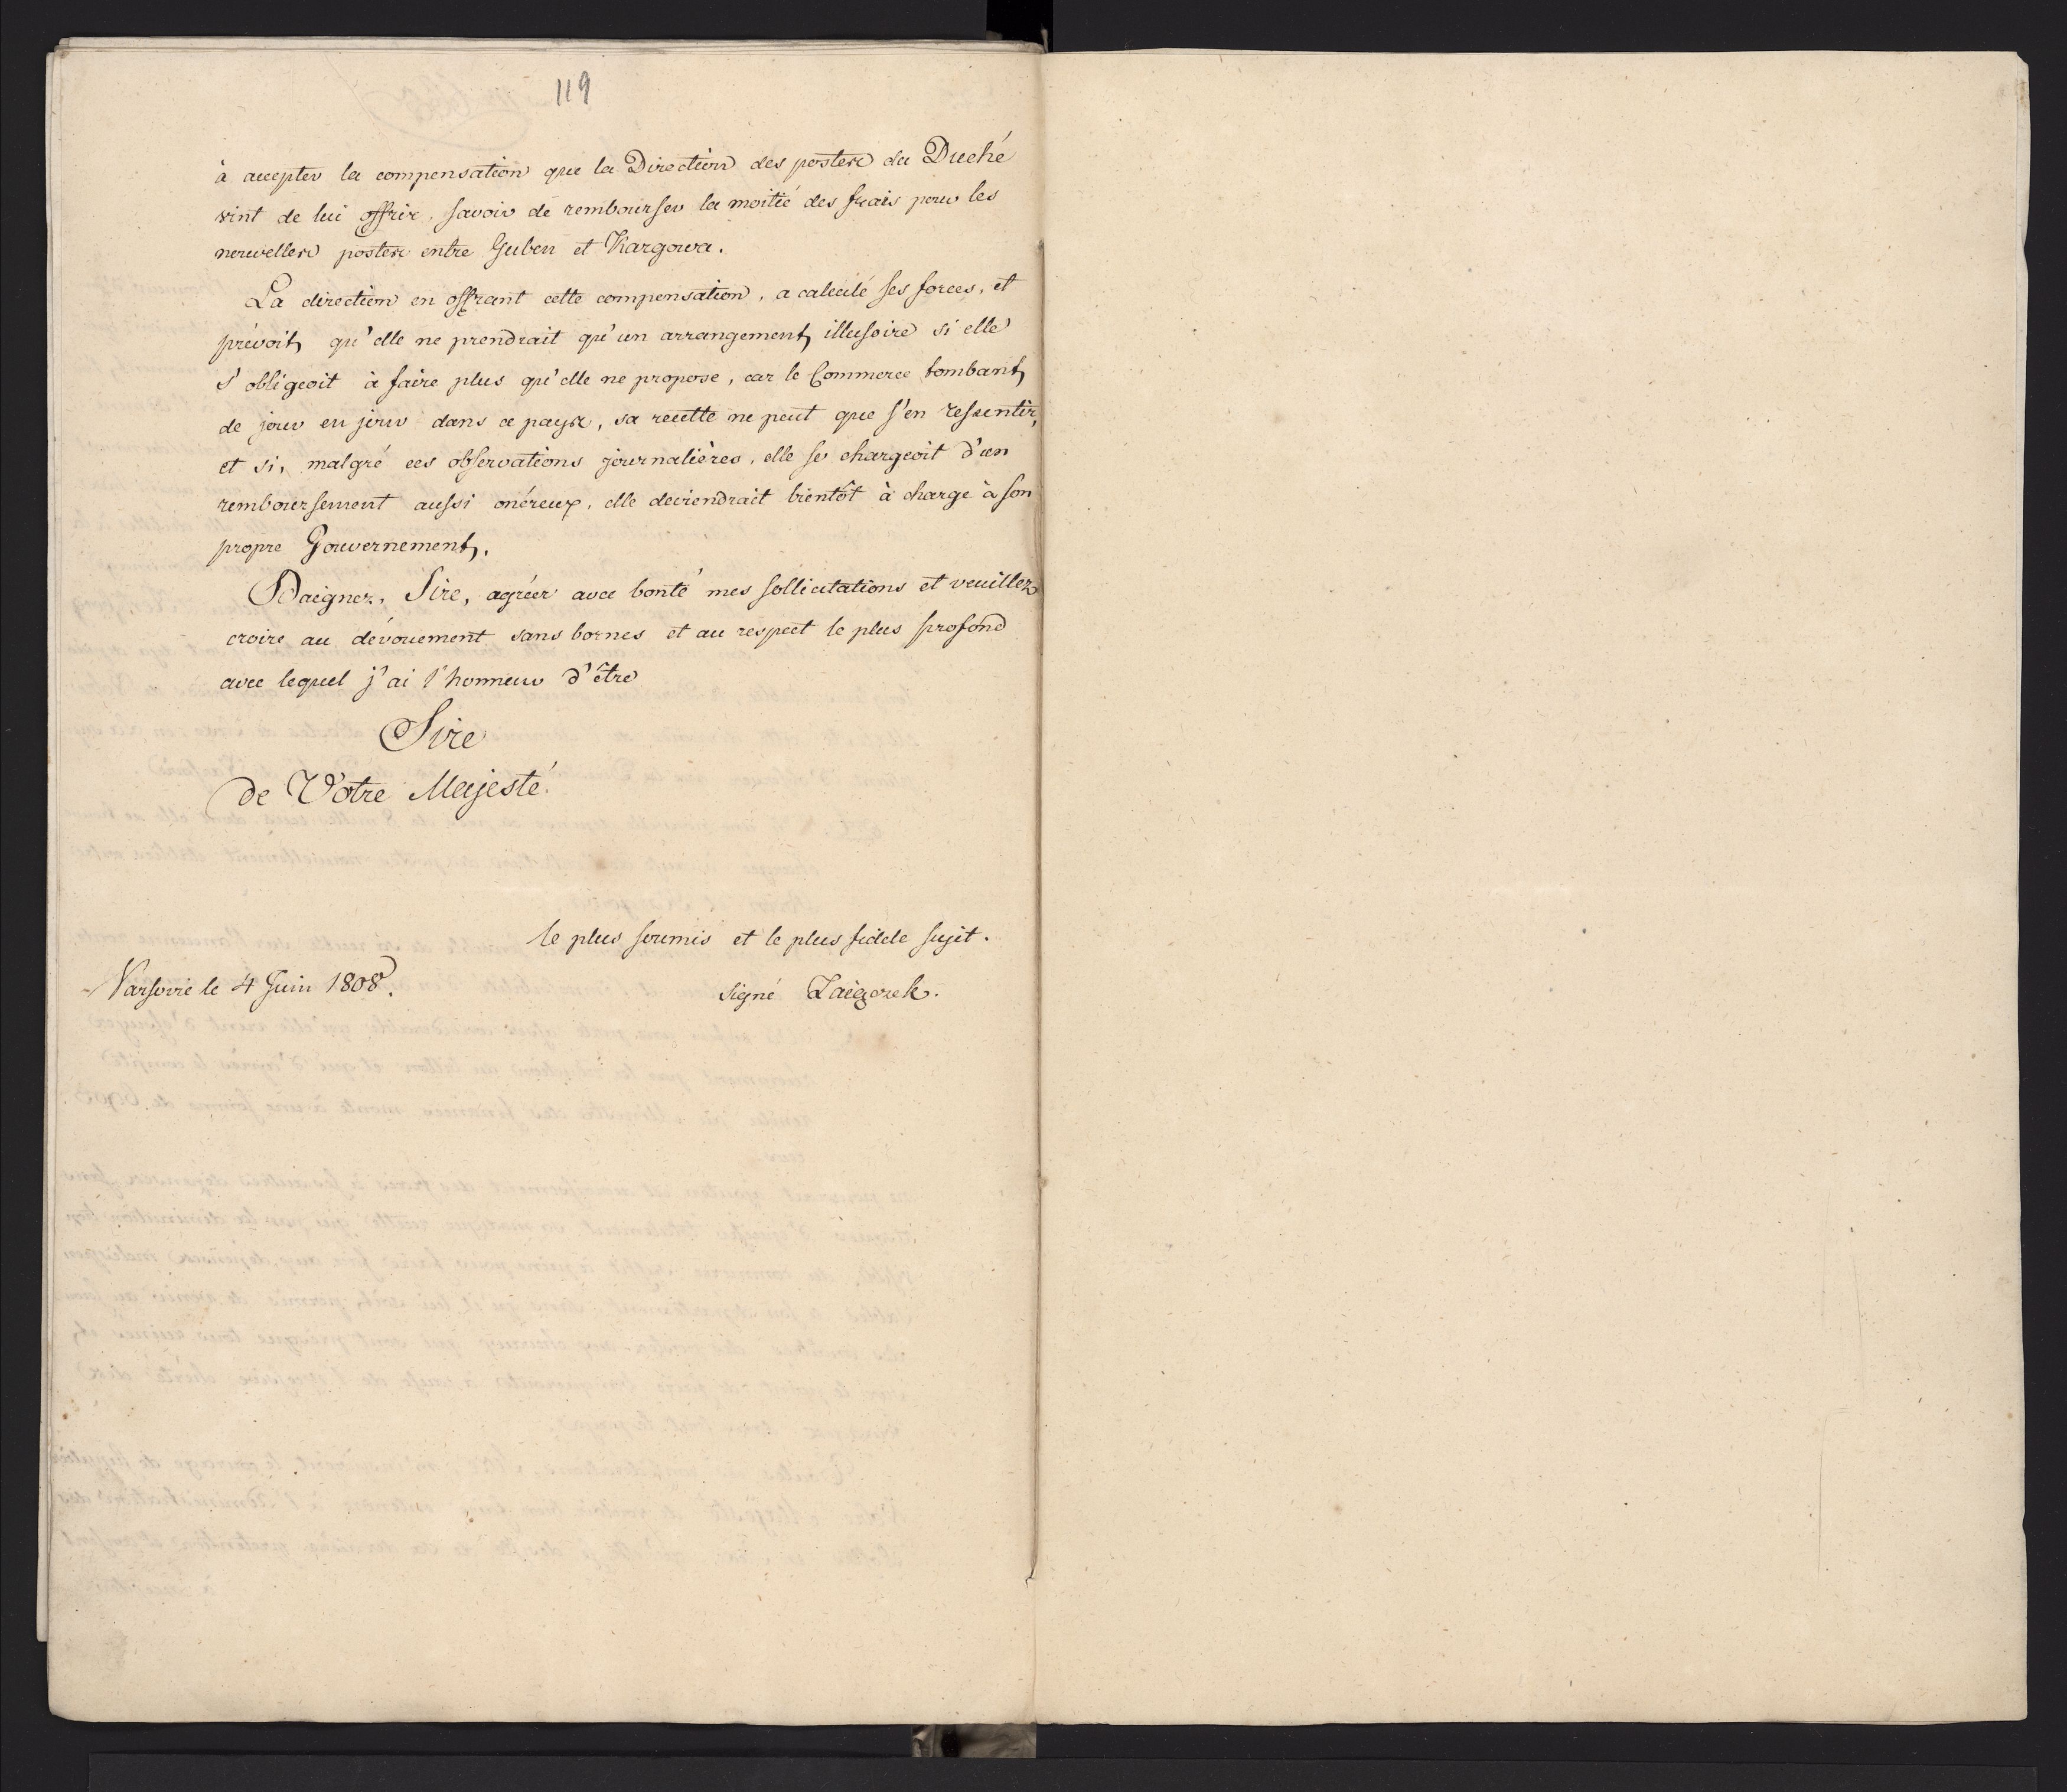 119
à accepter la compensation que la Direction des postes du Duché
vint de lui offrir, savoir de rembourser la moitié des frais pour les
nouvelles postes entre Guben et Kargowa.
La direction en offrant cette compensation, a calculé ses forces, et
prévoit, qu'elle ne prendrait qu'un arrangement illusoire si elle
s'obligeoit à faire plus qu'elle ne propose, car le Commerce tombant
de jour en jour dans ce pays, sa recette ne peut que s'en ressentir,
et si, malgré ces observations journalières, elle se chargeoit d'un
remboursement aussi onéreux, elle deviendrait bientôt à charge à son
propre Gouvernement.
Daignez, Sire, agréer avec bonté mes sollicitations et veuillez
croire au dévouement sans bornes et au respect le plus profond
avec lequel j'ai l'honneur d'être
Sire
de Votre Majesté.
le plus soumis et le plus fidele sujet.
Varsovie le 4 Juin 1808.
signé Zaigczek.